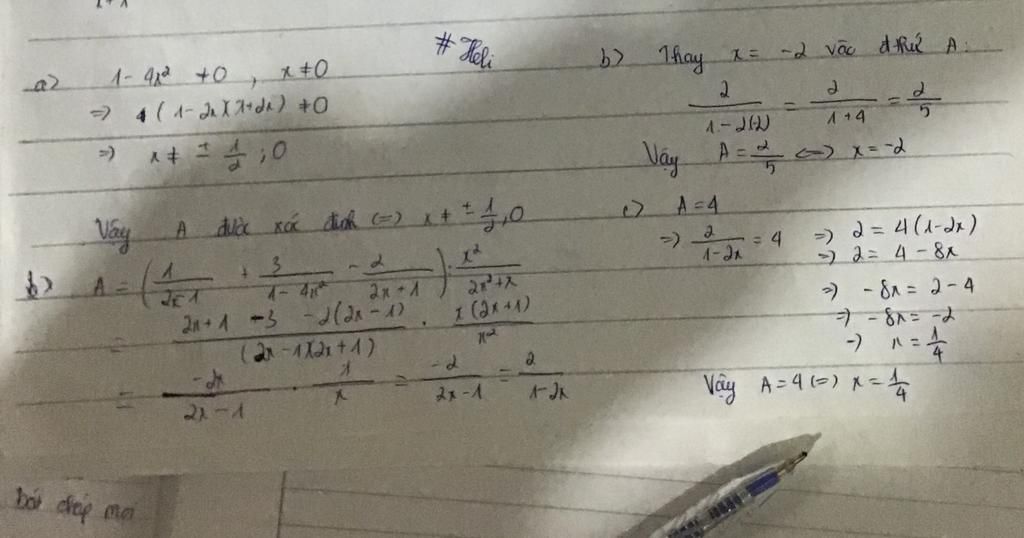 # Heli
a) 1 - 4x² ≠ 0 , x ≠ 0
=> (1 - 2x)(1 + 2x) ≠ 0
=> x ≠ ± 1/2 ; 0
Vậy A được xác định <=> x ≠ ± 1/2 , 0
b) A = (1/(2x-1) + 3/(1-4x²) - 2/(2x+1)) : x²/(2x²+x)
= (2x+1 -3 -2(2x-1))/((2x-1)(2x+1)) . x(2x+1)/x²
= -2x/(2x-1) . 1/x = -2/(2x-1) = 2/(1-2x)
b) Thay x = -2 vào A :
2/(1-2(2)) = 2/(1+4) = 2/5
Vậy A = 2/5 <=> x = -2
c) A = 4
=> 2/(1-2x) = 4 => 2 = 4(1-2x)
=> 2 = 4 - 8x
=> -8x = 2 - 4
=> -8x = -2
=> x = 1/4
Vậy A = 4 <=> x = 1/4